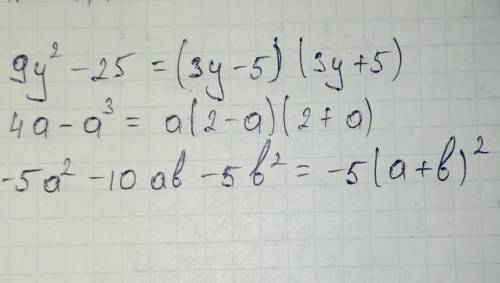 9y² - 25 = (3y - 5) (3y + 5)
4a - a³ = a(2 - a)(2 + a)
-5a² - 10ab - 5b² = -5(a + b)²